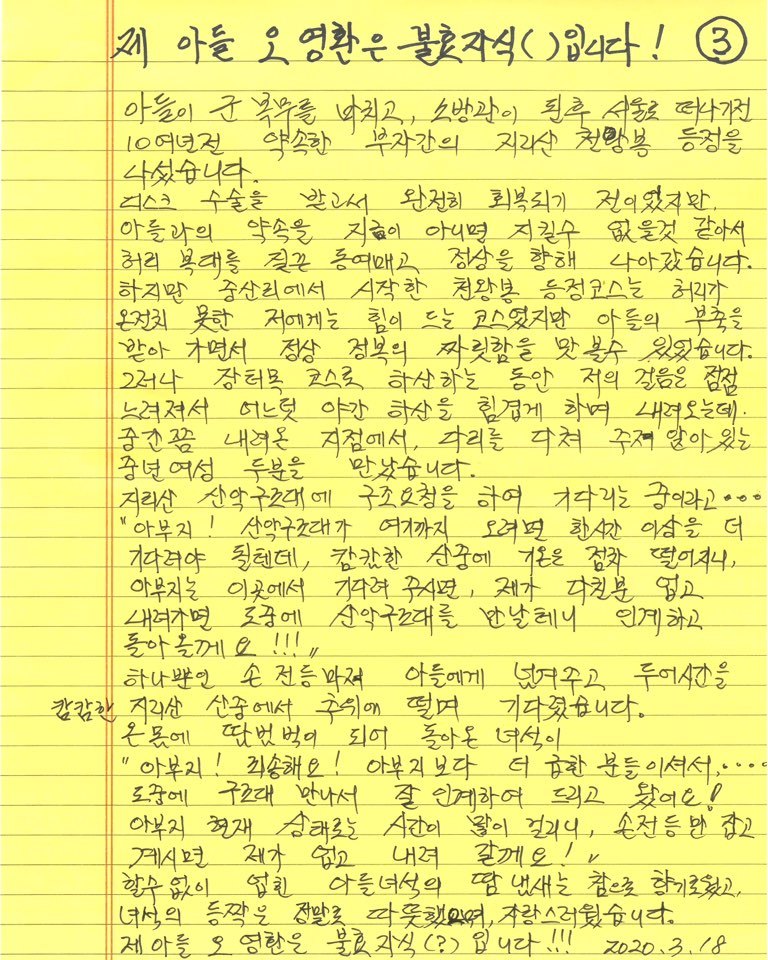 제 아들 오영환은 불효자식( )입니다! ③
아들이 군 복무를 마치고, 소방관이 된후 서울로 떠나가전
10여년전 약속한 부자간의 지리산 천왕봉 등정을
나섰습니다.
디스크 수술을 받고서 완전히 회복되기 전이었지만,
아들과의 약속을 지금이 아니면 지킬수 없을것 같아서
허리 복대를 질끈 동여매고 정상을 향해 나아갔습니다.
하지만 중산리에서 시작한 천왕봉 등정코스는 허리가
온전치 못한 저에게는 힘이 드는 코스였지만 아들의 부축을
받아 가면서 정상 정복의 짜릿함을 맛볼수 있었습니다.
그러나 장터목 코스로 하산하는 동안 저의 걸음은 점점
느려져서 어느덧 야간 하산을 힘겹게 하며 내려오는데.
중간쯤 내려온 지점에서, 다리를 다쳐 주저 앉아 있는
중년여성 두분을 만났습니다.
지리산 산악구조대에 구조요청을 하여 기다리는 중이라고...
"아부지! 산악구조대가 여기까지 오려면 한시간 이상을 더
기다려야 될텐데, 캄캄한 산중에 기온은 점차 떨어지니,
아부지는 이곳에서 기다려 주시면, 제가 다친분 업고
내려가면 도중에 산악구조대를 만날테니 인계하고
돌아올께요!!!"
하나뿐인 손전등마저 아들에게 넘겨주고 두어시간을
캄캄한 지리산 산중에서 추위에 떨며 기다렸습니다.
온 몸에 땀범벅이 되어 돌아온 녀석이
"아부지! 죄송해요! 아부지보다 더 급한 분들이셔서,....
도중에 구조대 만나서 잘 인계하여 드리고 왔어요!
아부지 현재 상태로는 시간이 많이 걸리니, 손전등만 잡고
계시면 제가 업고 내려 갈께요!"
할수없이 업힌 아들녀석의 땀 냄새는 참으로 향기로웠고,
녀석의 등짝은 정말로 따뜻했으며, 자랑스러웠습니다.
제 아들 오영환은 불효자식(?)입니다!!! 2020.3.18